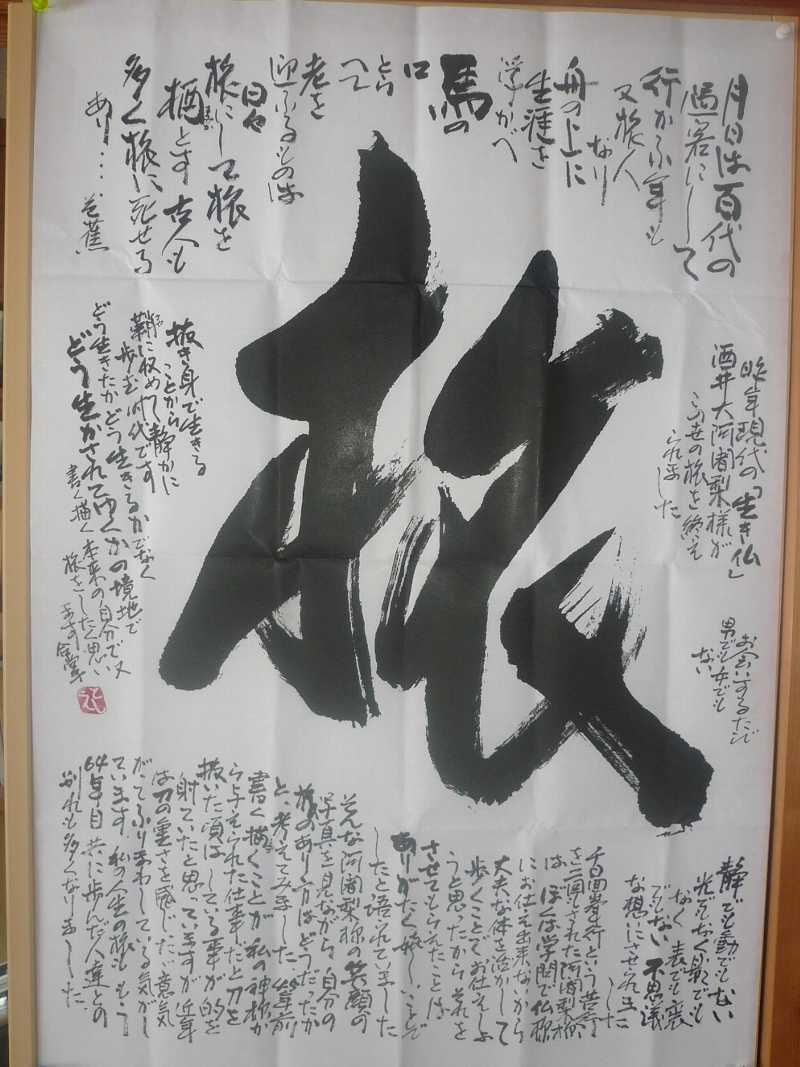 月日は百代の
過客にして
行かふ年も
又旅人
なり
舟の上に
生涯を
浮かべ
馬の
口
とら
へて
老を
迎ふるものは
日々
旅にして旅を
栖とす 古人も
多く旅に死せる
あり… 芭蕉
旅
昨年現代の「生き仏」
酒井大阿闍梨様が
この世の旅を終え
られました
お会いするたび
男でも女でも
ない
静でも動でもない
光でもなく影でも
なく 表でも裏
でもない 不思議
な想いにさせられま
した
千日回峰行という荒行
を二回もされた阿闍梨様
は ぼくは学問で仏様
にお仕え出来ないから
丈夫な体を活かして
歩くことでお仕えしよ
うと思ったから それを
させてもらえたことは
ありがたく嬉しいことで
したと語られていました
そんな阿闍梨様の笑顔の
写真を見ながら 自分の
旅のあり方はどうだったか
と、考えてみました 筆前
書く描くことが 私の神様か
ら与えられた仕事だと刀を
抜いた頃は している事が的を
射ていたと思っていますが 近年
は刀の重さを感じた、意気
がってふりまわしている気がし
ています 私の人生の旅も もう
64年目 共に歩んだ人達との
別れも多くなりました
抜き身で生きる
ことから
鞘に収めて静かに
歩む時代です
どう生きたか どう生きるかでなく
どう生かされてゆくかの境地で
書く描く 本来の自分で 又
旅をしたく思い
ます